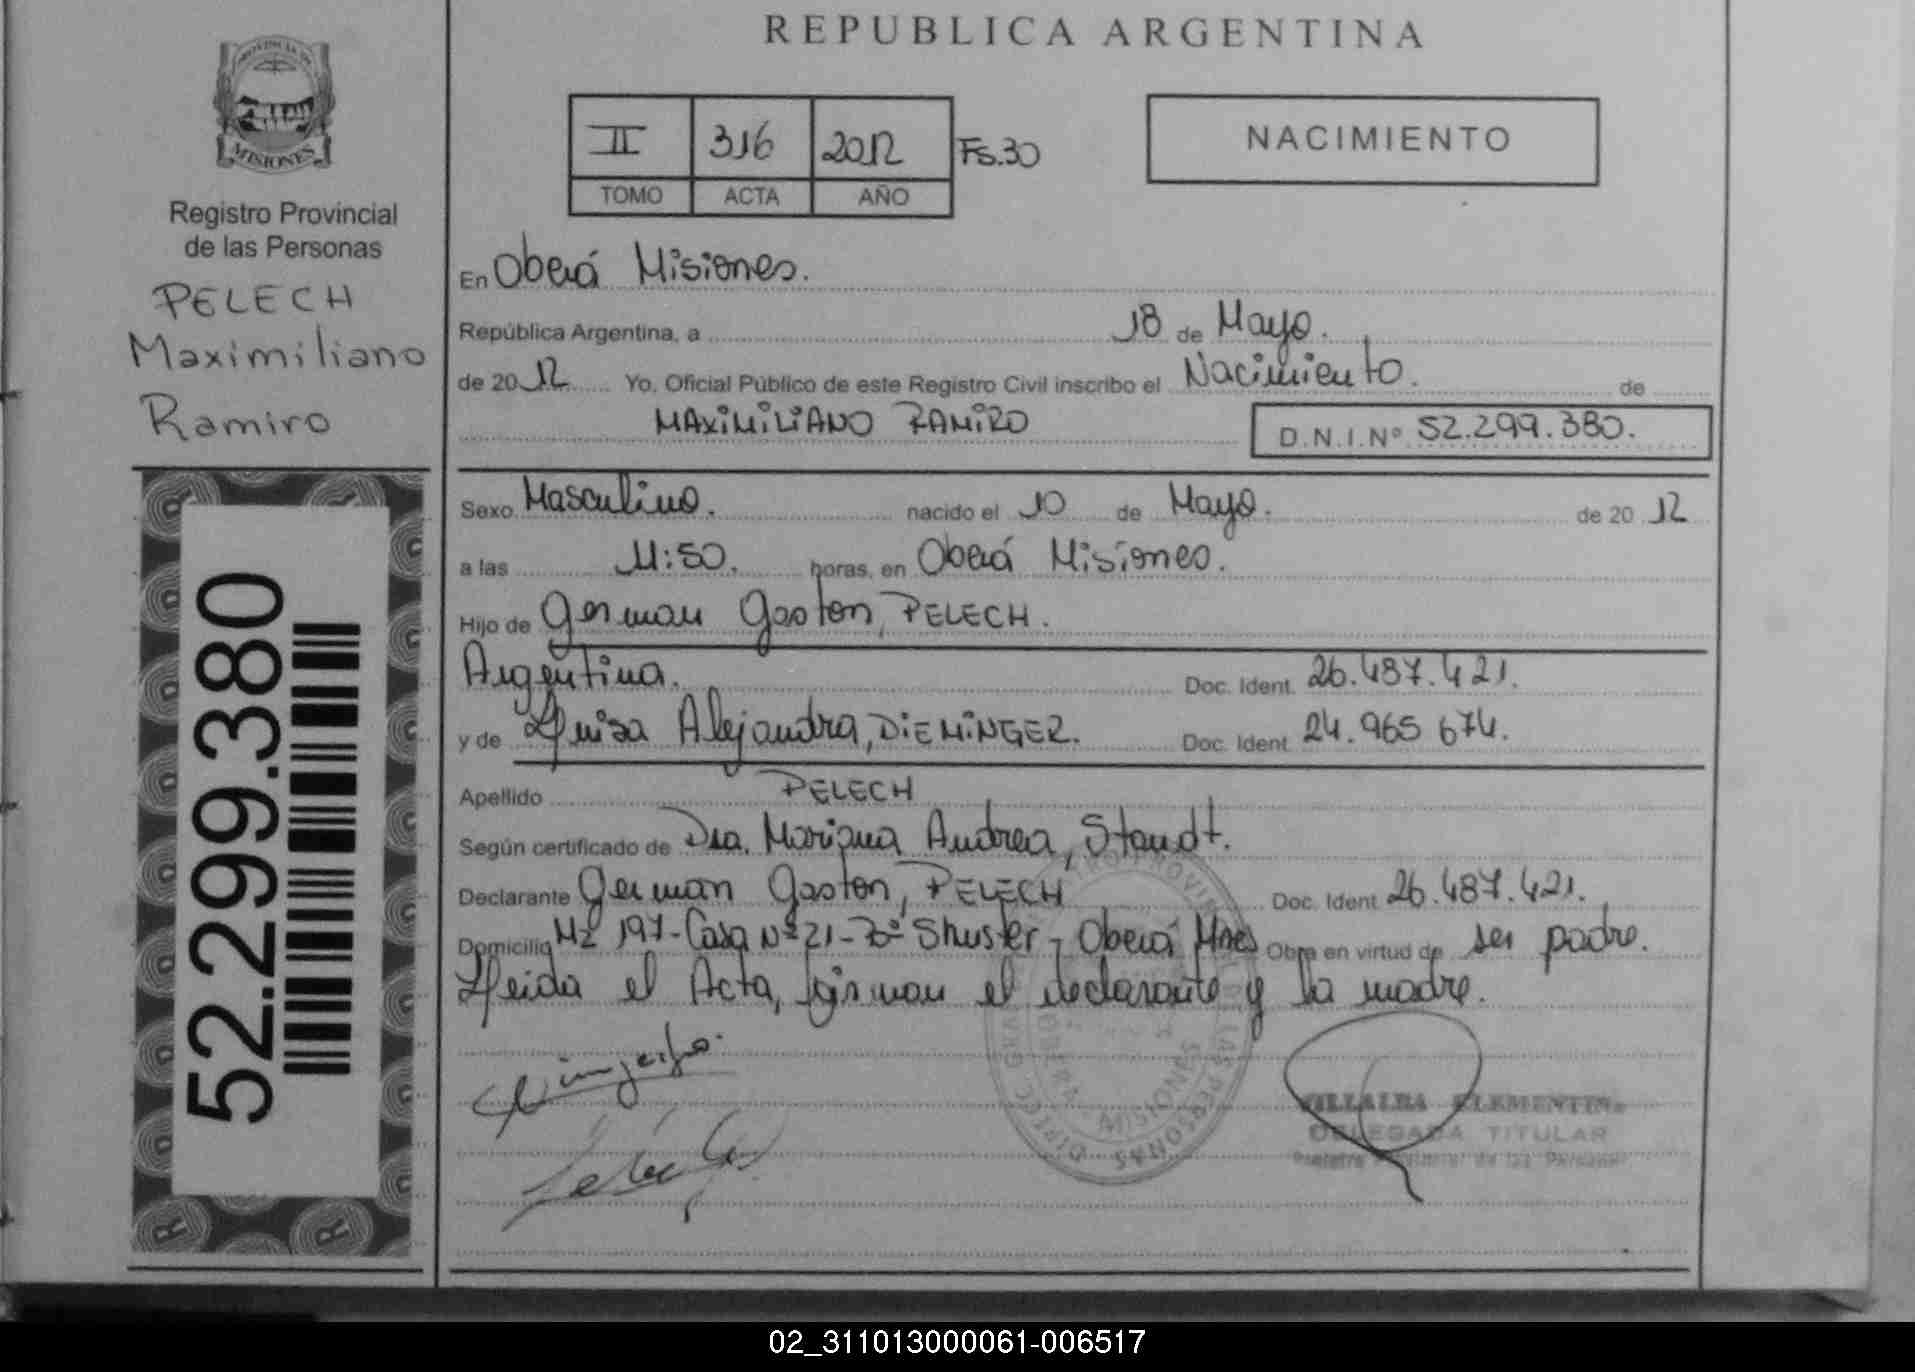 REPUBLICA ARGENTINA
PROVINCIA DE
MISIONES
Registro Provincial
de las Personas
PELECH
Maximiliano
Ramiro
52.299.380
II 316 2012 Fs.30
TOMO ACTA AÑO
NACIMIENTO
En Oberá Misiones.
República Argentina, a 18 de Mayo.
de 2012 Yo, Oficial Público de este Registro Civil inscribo el Nacimiento. de
MAXIMILIANO RAMIRO D.N.I.Nº 52.299.380.
Sexo Masculino. nacido el 10 de Mayo. de 2012
a las 11:50. horas, en Oberá Misiones.
Hijo de German Gaston, PELECH.
Argentina. Doc. Ident. 26.487.421.
y de Luisa Alejandra, DIEMINGER. Doc. Ident. 24.965 674.
Apellido PELECH
Según certificado de Dra. Mariana Andrea, Staudt.
Declarante German Gaston, PELECH Doc. Ident. 26.487.421.
Domicilio Mz 197-Casa Nº 21-Bº Shuster - Oberá Mnes Obra en virtud de ser padre.
Leida el Acta, firman el declarante y la madre.
VILLALBA CLEMENTINA
DELEGADA TITULAR
Registro Provincial de las Personas
02_311013000061-006517